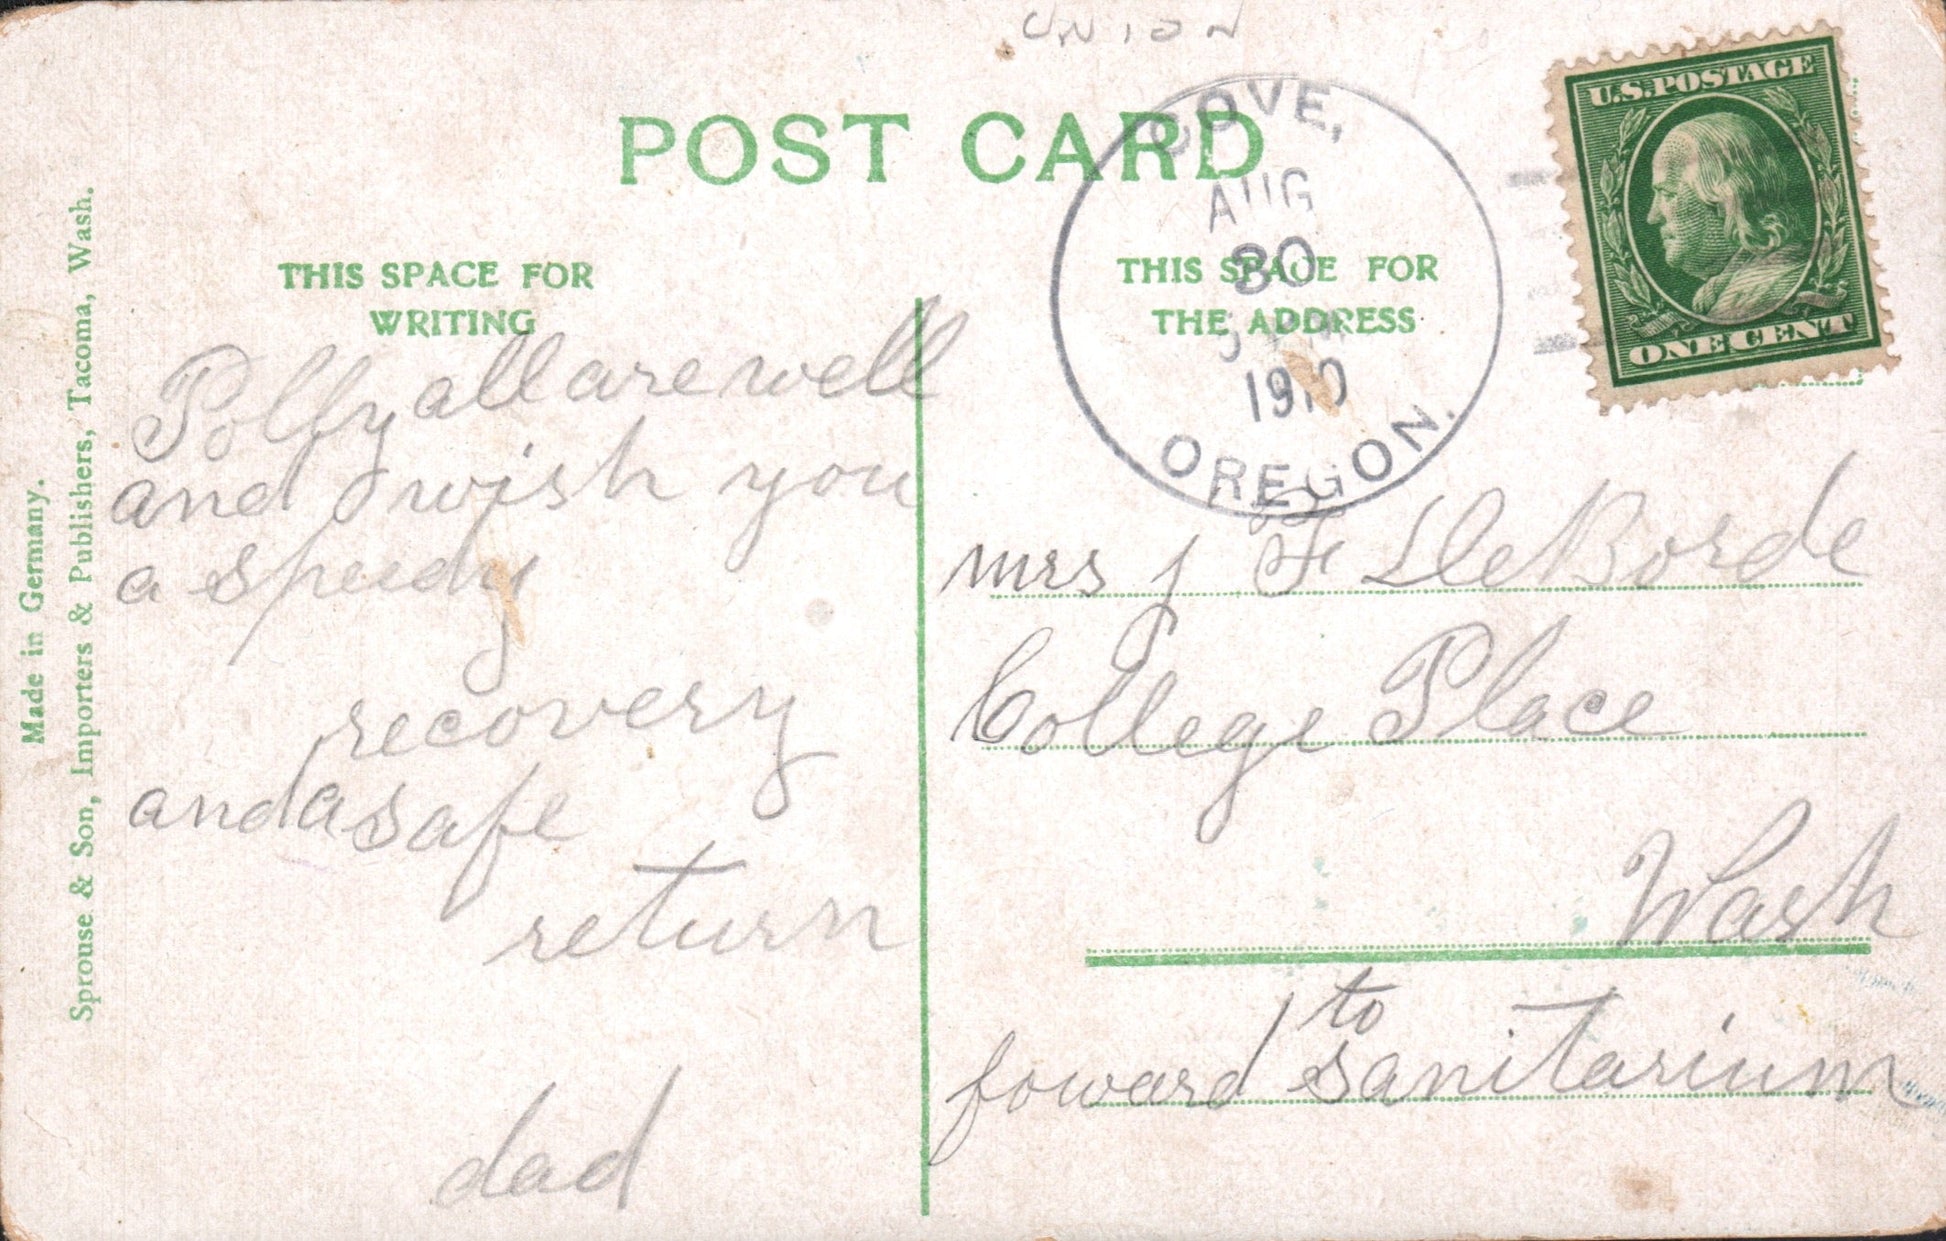 UNION
POST CARD
COVE,
AUG
30
1910
OREGON.
U.S.POSTAGE
ONE CENT
THIS SPACE FOR
WRITING
THIS SPACE FOR
THE ADDRESS
Polly all are well
and wish you
a speedy
recovery
and a safe
return
dad
mrs J F DeBorde
College Place
Wash
foward to sanitarium
Made in Germany.
Sprouse & Son, Importers & Publishers, Tacoma, Wash.